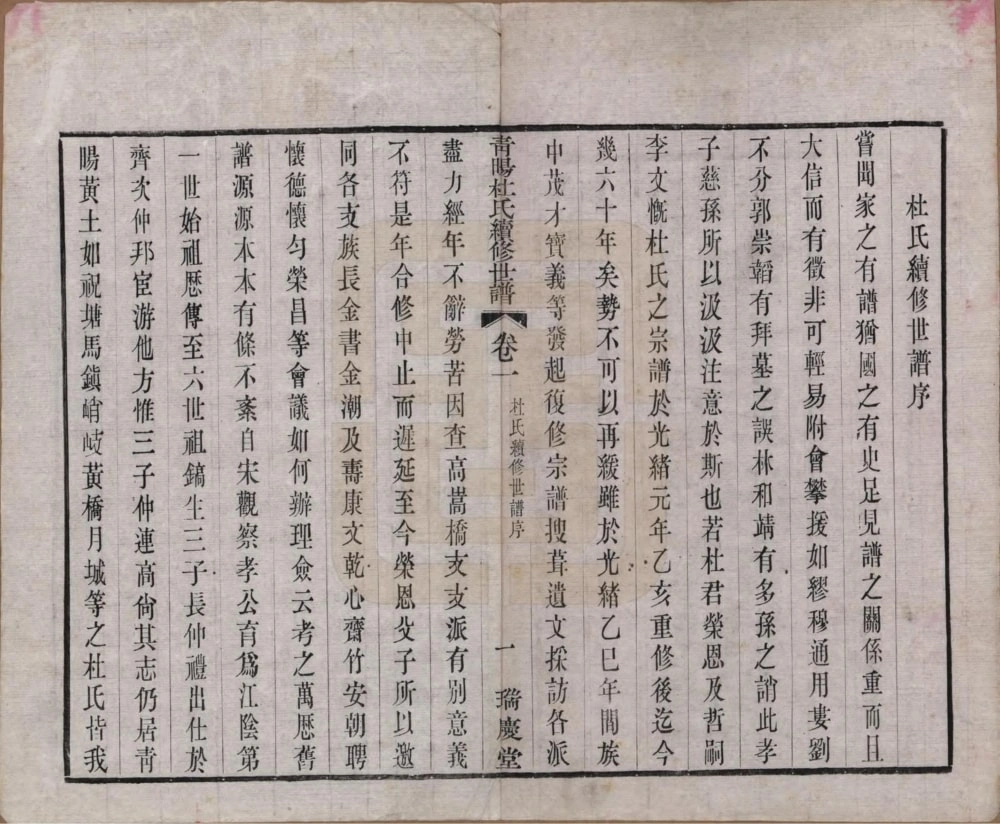 杜氏續修世譜序
嘗聞家之有譜猶國之有史足見譜之關係重而且
大信而有徵非可輕易附會攀援如繆穆通用婁劉
不分郭崇韜有拜墓之誤林和靖有多孫之誚此孝
子慈孫所以汲汲注意於斯也若杜君榮恩及哲嗣
李文慨杜氏之宗譜於光緒元年乙亥重修後迄今
幾六十年矣勢不可以再緩雖於光緒乙巳年間族
中茂才寶義等發起復修宗譜搜葺遺文採訪各派
青暘杜氏續修世譜
卷一
杜氏續修世譜序
一
瑞慶堂
盡力經年不辭勞苦因查高嵩橋支支派有別意義
不符是年合修中止而遲延至今榮恩父子所以邀
同各支族長金書金潮及壽康文乾心齋竹安朝聘
懷德懷勻榮昌等會議如何辦理僉云考之萬歷舊
譜源源本本有條不紊自宋觀察孝公育爲江陰第
一世始祖歷傳至六世祖鎬生三子長仲禮出仕於
齊次仲邦宦游他方惟三子仲連高尙其志仍居青
暘黃土如祝塘馬鎭峭岐黃橋月城等之杜氏皆我